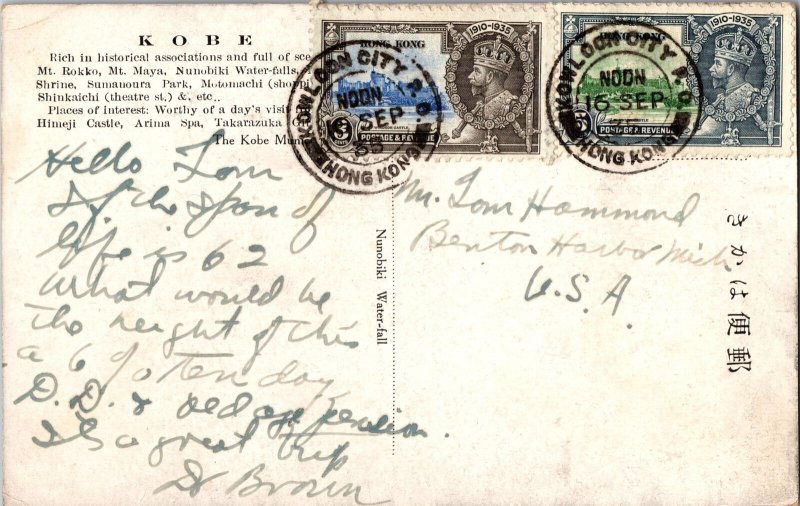 KOBE
Rich in historical associations and full of sce
Mt. Rokko, Mt. Maya, Nunobiki Water-falls,
Shrine, Sumanoura Park, Motomachi (shoppi
Shinkaichi (theatre st.) &. etc..
Places of interest: Worthy of a day's visit
Himeji Castle, Arima Spa, Takarazuka
The Kobe Muni
1910-1935
HONG KONG
POSTAGE & REVENUE
CENTS
KOWLOON CITY B.O.
NOON
SEP
35
HONG KONG
1910-1935
HONG KONG
POSTAGE & REVENUE
KOWLOON CITY B.O.
NOON
16 SEP
35
HONG KONG
Hello Tom
If the span of
life is 62
What would be
the height of this
a 6 % Ten day
D. D. & old age pension.
Its a great trip
Dr Brown
Nunobiki Water-fall
Mr. Tom Hammond
Benton Harbor Mich
U.S.A.
きかは便郵